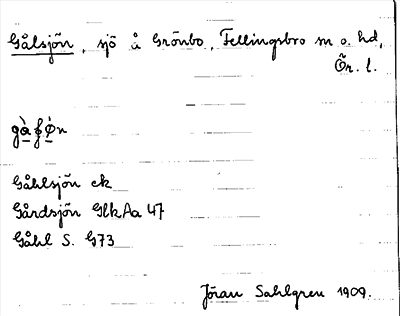 Gålsjön, sjö å Grönbo, Fellingsbro sn o. hd,
Ör. l.
Gåhlsjön ek
Gårdsjön GlkAa 47
Gåhl S. G73
Jöran Sahlgren 1909.